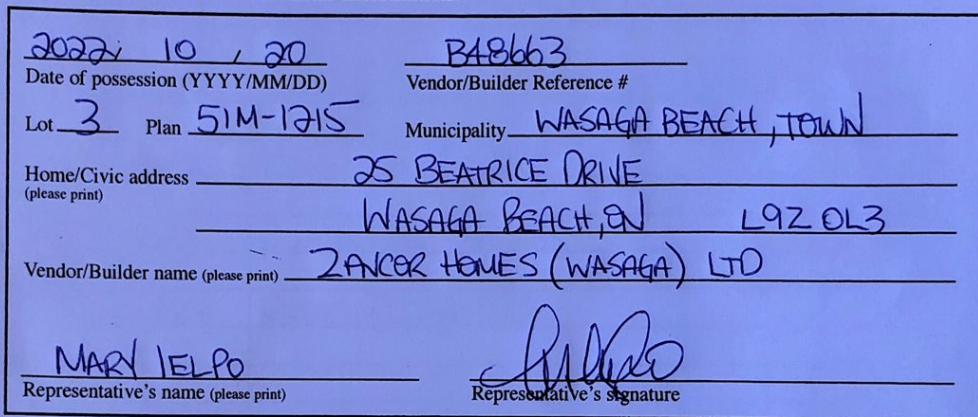 2022, 10, 20 B48663
Date of possession (YYYY/MM/DD) Vendor/Builder Reference #
Lot 3 Plan 51M-1215 Municipality WASAGA BEACH, TOWN
Home/Civic address 25 BEATRICE DRIVE
(please print)
WASAGA BEACH, ON L9Z 0L3
Vendor/Builder name (please print) ZANCOR HOMES (WASAGA) LTD
MARY IELPO
Representative's name (please print) Representative's signature